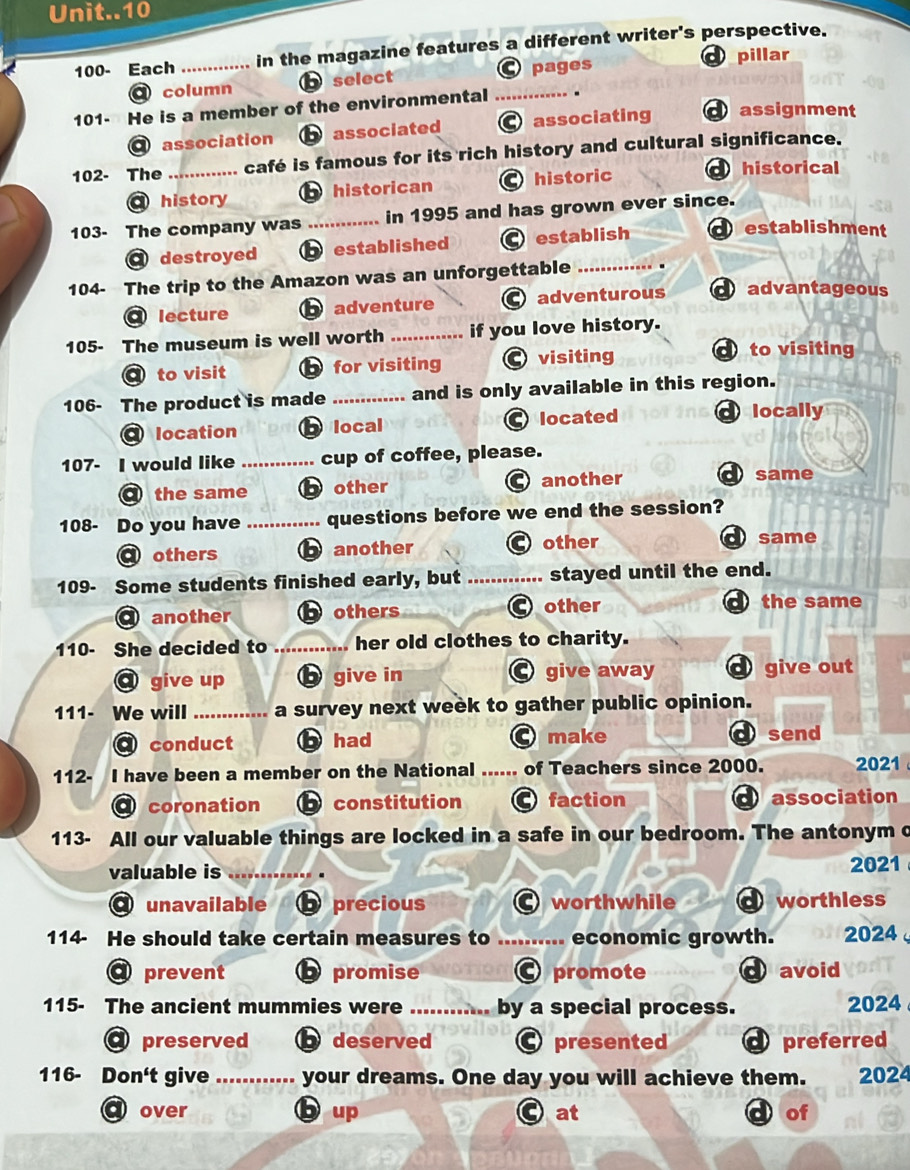 Unit..10
100- Each ............ in the magazine features a different writer's perspective.
a column b select c pages d pillar
101- He is a member of the environmental ............. .
a association b associated c associating d assignment
102- The ............ café is famous for its rich history and cultural significance.
a history b historican c historic d historical
103- The company was ............ in 1995 and has grown ever since.
a destroyed b established c establish d establishment
104- The trip to the Amazon was an unforgettable ............. .
a lecture b adventure c adventurous d advantageous
105- The museum is well worth ............. if you love history.
a to visit b for visiting c visiting d to visiting
106- The product is made ............. and is only available in this region.
a location b local c located d locally
107- I would like ............. cup of coffee, please.
a the same b other c another d same
108- Do you have ............. questions before we end the session?
a others b another c other d same
109- Some students finished early, but ............. stayed until the end.
a another b others c other d the same
110- She decided to ............. her old clothes to charity.
a give up b give in c give away d give out
111- We will ............. a survey next week to gather public opinion.
a conduct b had c make d send
112- I have been a member on the National ...... of Teachers since 2000. 2021
a coronation b constitution c faction d association
113- All our valuable things are locked in a safe in our bedroom. The antonym
valuable is .............. . 2021
a unavailable b precious c worthwhile d worthless
114- He should take certain measures to ........... economic growth. 2024
a prevent b promise c promote d avoid
115- The ancient mummies were ............. by a special process. 2024
a preserved b deserved c presented d preferred
116- Don't give ............. your dreams. One day you will achieve them. 2024
a over b up c at d of